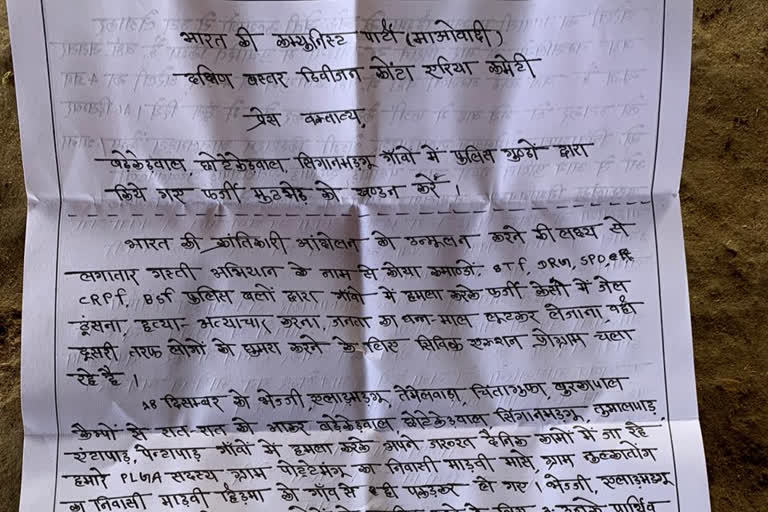 भारत की कम्युनिस्ट पार्टी (माओवादी)
दक्षिण बस्तर डिवीजन कोंटा एरिया कमेटी
प्रेस वक्तव्य,
बड़ेकेड़वाल, छोटेकेड़वाल, सिंगानमड़गू गांवों में पुलिस गुण्डों द्वारा
किये गए फर्जी मुटभेड़ को खण्डन करें ।
भारत की क्रांतिकारी आंदोलन को उन्मूलन करने की लक्ष्य से
लगातार गस्ती अभियान के नाम से कोया कमाण्डों, BTF, DRG, SPO,
CRPF, BSF पुलिस बलों द्वारा गाँवों में हमला करके फर्जी केसों में जेल
ठूंसना, हत्या-अत्याचार करना, जनता का माल लूटकर लेजाना, वहीं
दूसरी तरफ लोगों को करने के लिए सिविक एक्शन प्रोग्राम चला
रहे है ।
18 दिसम्बर को भेज्जी, एलाड़मड़गू, तेमेलवाड़ा, चिंतागुफा, बुरकापाल
कैम्पों से रात-रात को आकर बड़ेकेड़वाल, छोटेकेड़वाल, सिंगानमड़गू, तुमालपाड़,
एंटापाड़, पेन्टापाड़ गाँवों में हमला करके अपने जरूरत दैनिक कामों में जा रहे
हमारे PLGA सदस्य ग्राम का निवासी माड़वी मासे, ग्राम
का निवासी माड़वी हिड़मा को गाँव से ही पकड़कर ले गए । भेज्जी, एलाड़मड़गू